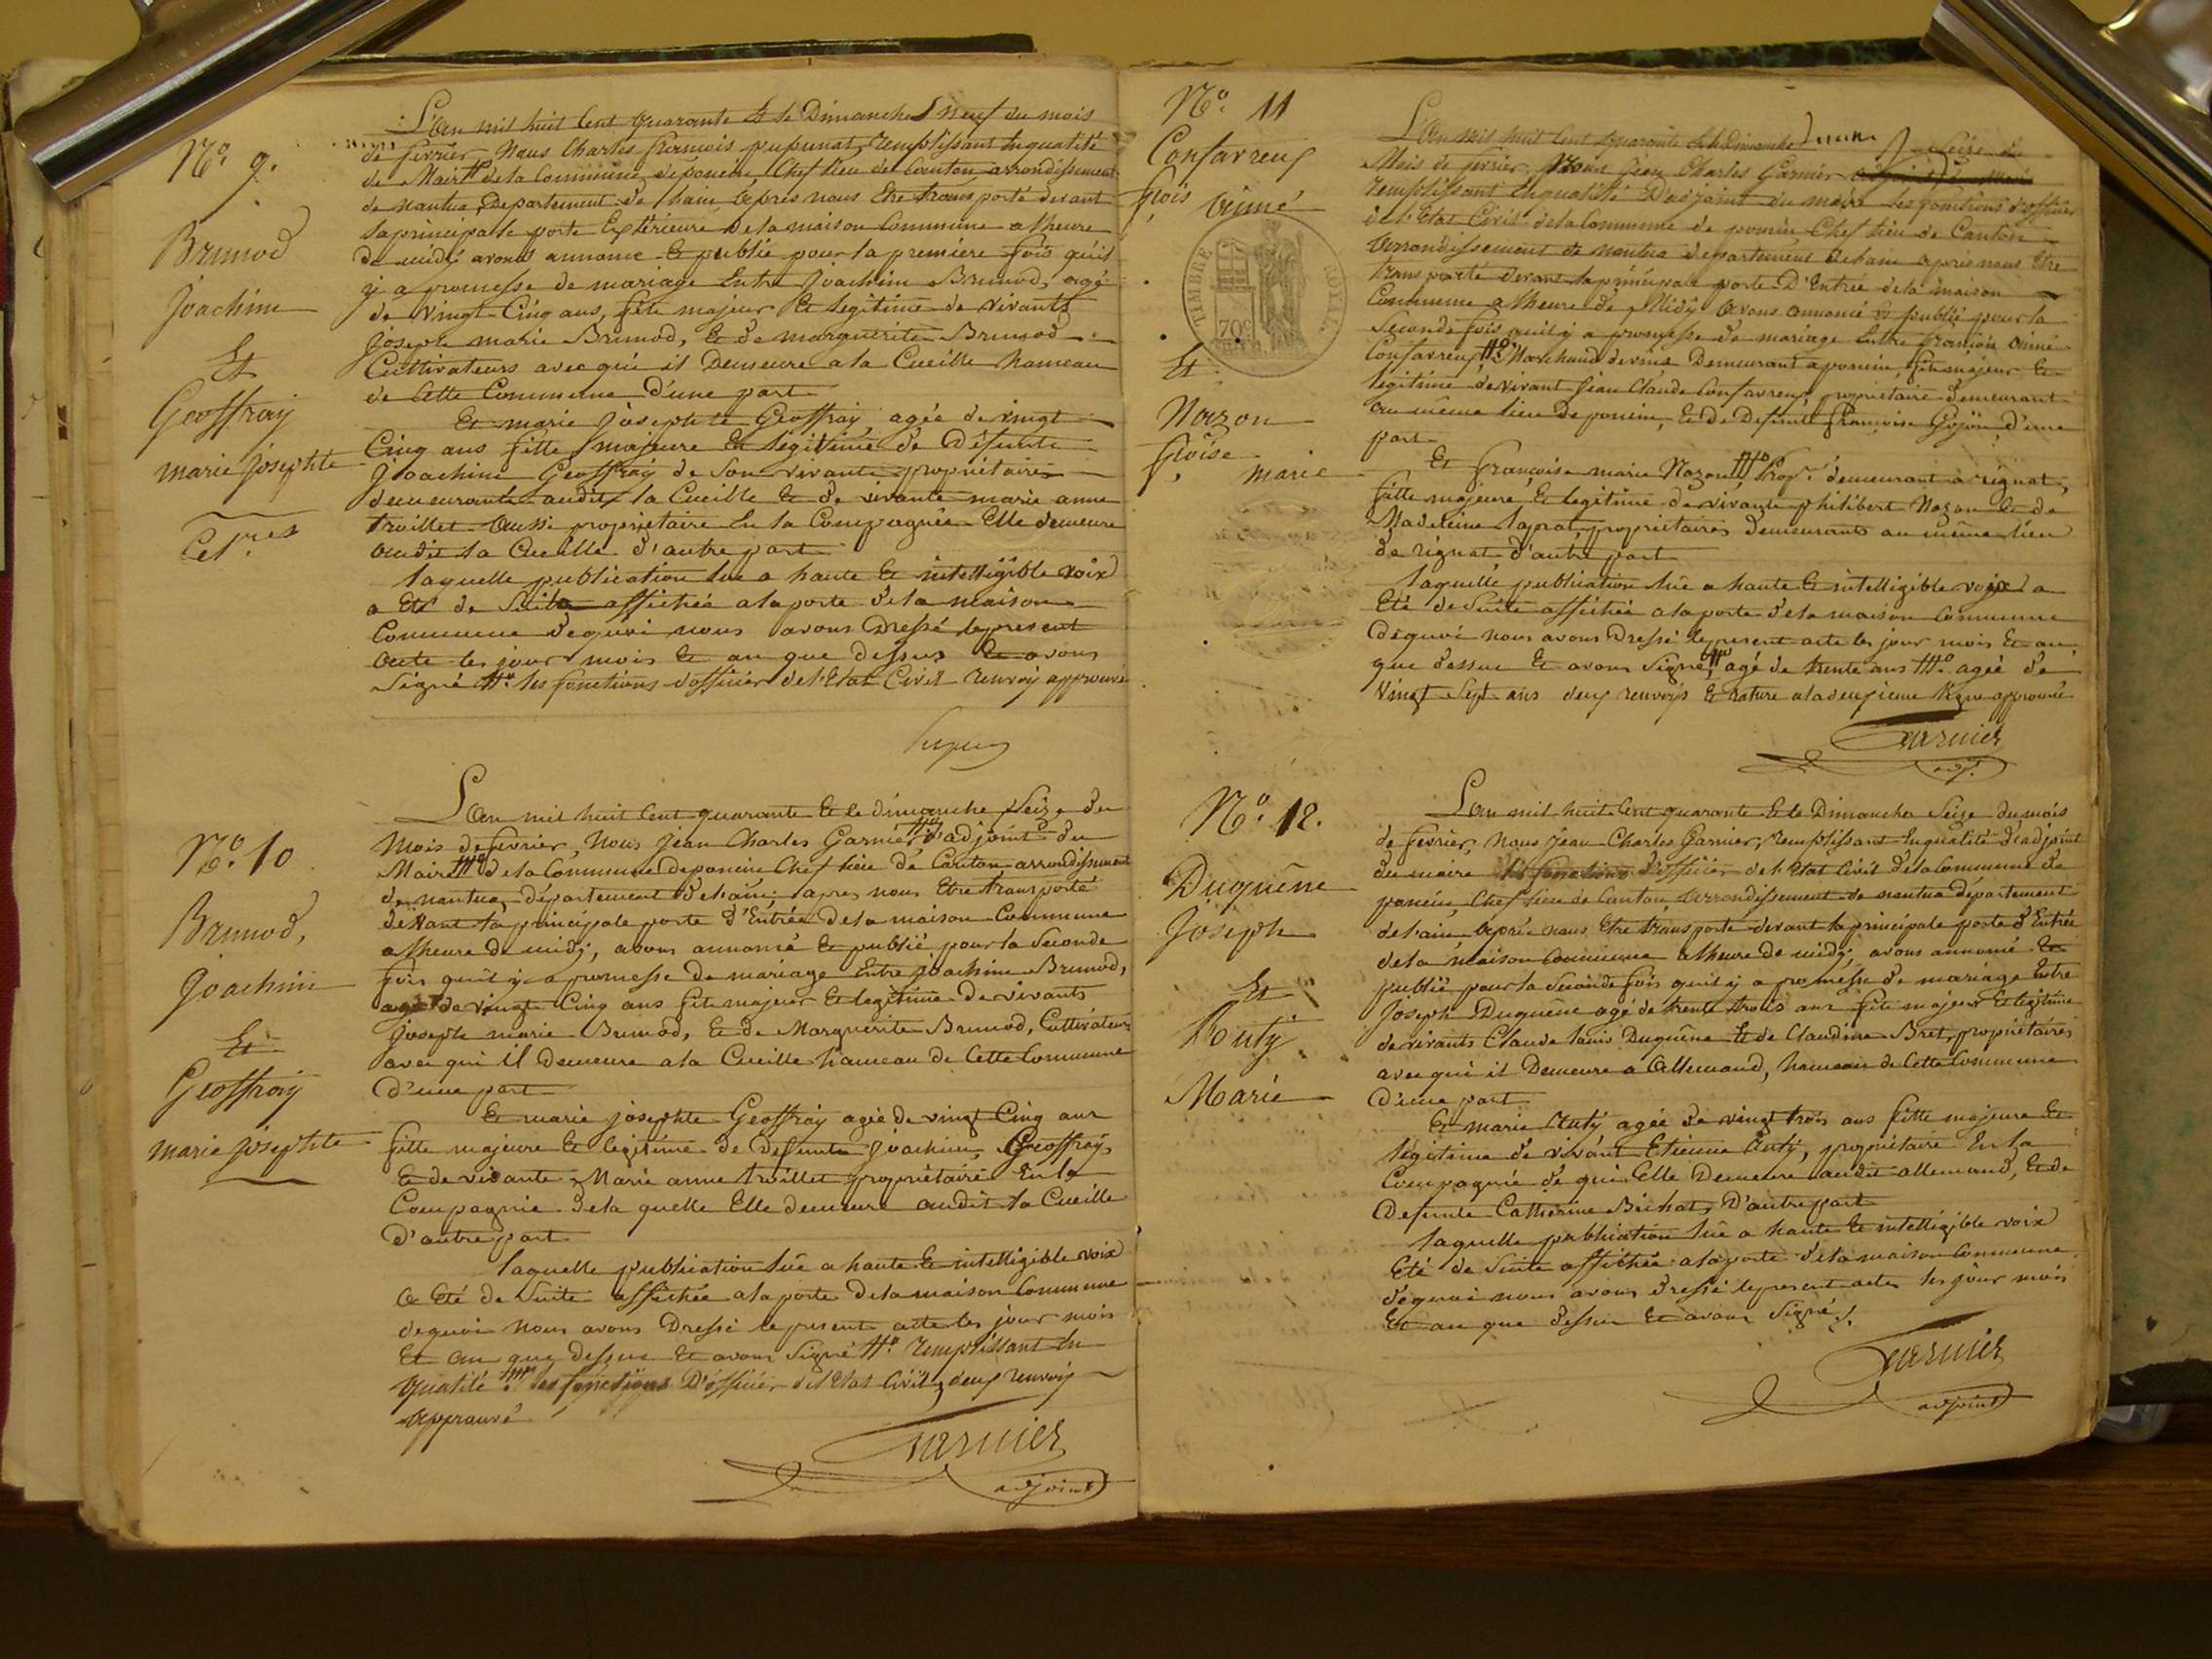 N.º 9.
Brunod
Joachim
Et
Geoffray
marie josephte
L'an mil huit Cent quarante Et le Dimanche neuf du mois
de fevrier Nous Charles francois pupunat, remplissant En qualité
de Maire #º dela Commune deponcin, Chef lieu de Canton arrondissement
de nantua, Departement de l'ain, Après nous Etre transporté devant
la principale porte Extérieure dela maison Commune a lheure
de midy avons annoncé Et publié pour la premiere fois qu'il
y a promesse de mariage Entre Joachim Brunod, agé
de vingt Cinq ans, fils majeur Et legitime de vivants
Joseph marie Brunod, Et de marguerite Brunod
Cultivateurs avec qui il Demeure a la Cueille hameau
de Cette Commune D'une part
Et marie josephte Geoffray, agée de vingt
Cinq ans fille majeure Et legitime de Défunt
Joachim Geoffray de Son vivant propriétaire
demeurant audit la Cueille Et de vivante marie anne
troillet Aussi propriétaire En la Compagnie Elle demeure
audit la Cueille d'autre part
laquelle publication lue a haute Et intelligible voix
a Eté de Suite affichée a la porte dela maison
Commune dequoi nous avons Dressé le present
acte les jour mois Et an que dessus Et avons
Signé #º les fonctions d'officier de l'Etat Civil renvoy approuvé
N.º 10
Brunod,
Joachim
Et
Geoffray
marie josephte
L'an mil huit Cent quarante Et le dimanche Seize du
Mois de fevrier, Nous Jean Charles Garnier #º d'adjoint du
Maire #º dela Commune deponcin Chef lieu de Canton arrondissement
de nantua, département de l'ain, apres nous Etre transporté
devant la principale porte d'Entrée dela maison Commune
a lheure de midy, avons annoncé Et publié pour la Seconde
fois qu'il y a promesse de mariage Entre Joachim Brunod,
agé de vingt Cinq ans fils majeur Et legitime de vivants
Joseph marie Brunod, Et de Marguerite Brunod, Cultivateurs
avec qui il Demeure a la Cueille hameau de Cette Commune
d'une part
Et marie josephte Geoffray agée de vingt Cinq ans
fille majeure Et legitime de Defunt Joachim Geoffray,
Et de vivante Marie anne troillet propriétaire En la
Compagnie dela quelle Elle demeure audit la Cueille
d'autre part
laquelle publication lûe a haute Et intelligible voix
a Eté de Suite affichée a la porte dela maison Commune
dequoi nous avons Dressé le present acte les jour mois
Et an que dessus Et avons Signé #º remplissant En
qualité #º les fonctions D'officier de l'Etat Civil, deux renvoys
approuvé
Garnier
adjoint
N.º 11
Confavreux
fçois aimé
TIMBRE ROYAL
70 C
Et
Nozon
fçoise
marie
L'an mil huit Cent quarante Et le Dimanche Seize du
Mois de fevrier Nous Jean Charles Garnier
remplissant En qualité D'adjoint du maire les fonctions d'officier
de l'Etat Civil dela Commune de poncin Chef lieu de Canton
Arrondissement de nantua departement de l'ain apres nous Etre
transporté devant la principale porte D'Entrée dela maison
Commune a lheure de Midy avons annoncé Et publié pour la
Seconde fois qu'il y a promesse de mariage Entre françois aimé
Confavreux, #º Marchand de vins Demeurant a poncin, fils majeur Et
legitime de vivant Jean Claude Confavreux, propriétaire demeurant
au même lieu de poncin, Et de Defunte françoise Gojon d'une
part
Et françoise marie Nozon #º Prop.re demeurant a rignat,
fille majeure, Et legitime de vivants philibert Nozon Et de
Madeleine laprat propriétaires demeurants au même lieu
de rignat d'autre part
laquelle publication lûe a haute Et intelligible voix a
Eté de Suite affichée a la porte dela maison Commune
dequoi nous avons Dressé le present acte les jour mois Et an
que dessus Et avons Signé, #º agé de trente ans #º agée de
vingt Sept ans deux renvoys Et rature a la deuxieme ligne approuvé
Garnier
adj.
N.º 12.
Duquêne
Joseph
Et
Routy
Marie
L'an mil huit Cent quarante Et le Dimanche Seize du mois
de fevrier, Nous Jean Charles Garnier, remplissant En qualité d'adjoint
du maire les fonctions d'officier de l'Etat Civil dela Commune de
poncin, Chef lieu de Canton, Arrondissement de nantua departement
de l'ain, Après nous Etre transporté devant la principale porte d'Entrée
dela maison Commune a lheure de midy, avons annoncé Et
publié pour la Seconde fois qu'il y a promesse de mariage Entre
Joseph Duquêne agé de trente trois ans fils majeur Et legitime
de vivants Claude louis Duquêne Et de Claudine Bret, propriétaires
avec qui il Demeure a Allemand, hameau de Cette Commune
d'une part
Et marie agée de vingt trois ans fille majeure Et
legitime de vivant Etienne propriétaire En la
Compagnie de qui Elle Demeure audit allemand, Et de
Defunte Catherine Bichat, D'autre part
laquelle publication lûe a haute Et intelligible voix
Eté de Suite affichée a la porte dela maison Commune
dequoi nous avons dressé le present acte les jour mois
Et an que dessus Et avons Signé.
Garnier
adjoint